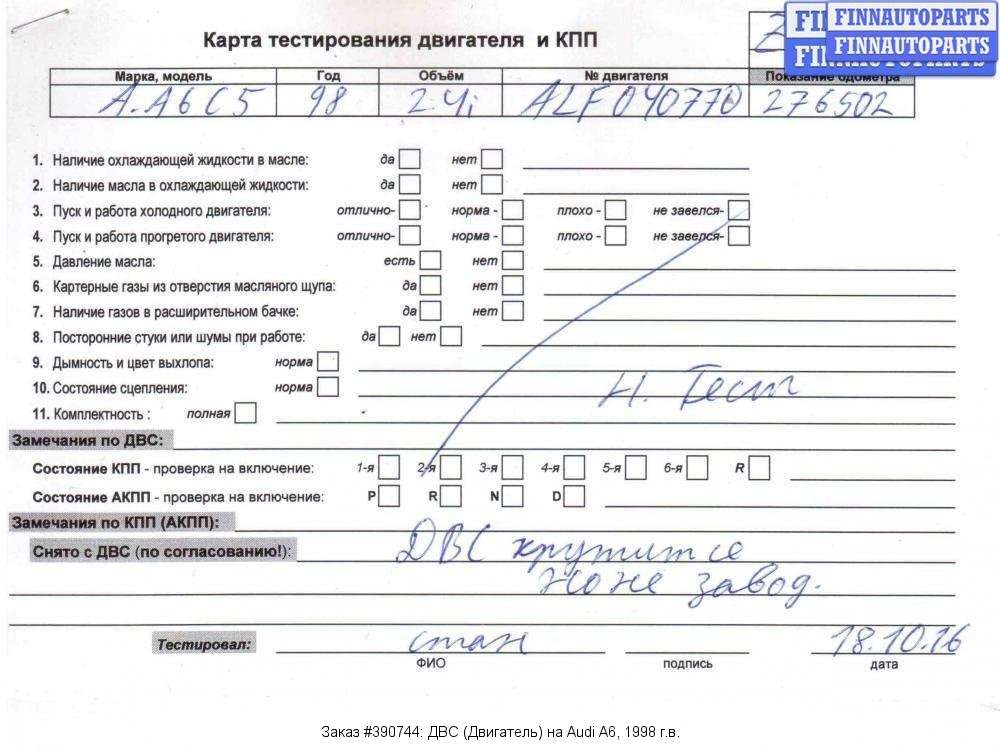 FINNAUTOPARTS
FINNAUTOPARTS
Карта тестирования двигателя и КПП
Марка, модель Год Объём № двигателя Показание одометра
А.А6 С5 98 2.4i ALF040770 276502
1. Наличие охлаждающей жидкости в масле: да нет
2. Наличие масла в охлаждающей жидкости: да нет
3. Пуск и работа холодного двигателя: отлично- норма - плохо - не завелся-
4. Пуск и работа прогретого двигателя: отлично- норма - плохо - не завелся-
5. Давление масла: есть нет
6. Картерные газы из отверстия масляного щупа: да нет
7. Наличие газов в расширительном бачке: да нет
8. Посторонние стуки или шумы при работе: да нет
9. Дымность и цвет выхлопа: норма
10. Состояние сцепления: норма
Н. Тест
11. Комплектность : полная
Замечания по ДВС:
Состояние КПП - проверка на включение: 1-я 2-я 3-я 4-я 5-я 6-я R
Состояние АКПП - проверка на включение: P R N D
Замечания по КПП (АКПП):
Снято с ДВС (по согласованию!): ДВС крутится
но не завод.
Тестировал: стан 18.10.16
ФИО подпись дата
Заказ #390744: ДВС (Двигатель) на Audi A6, 1998 г.в.